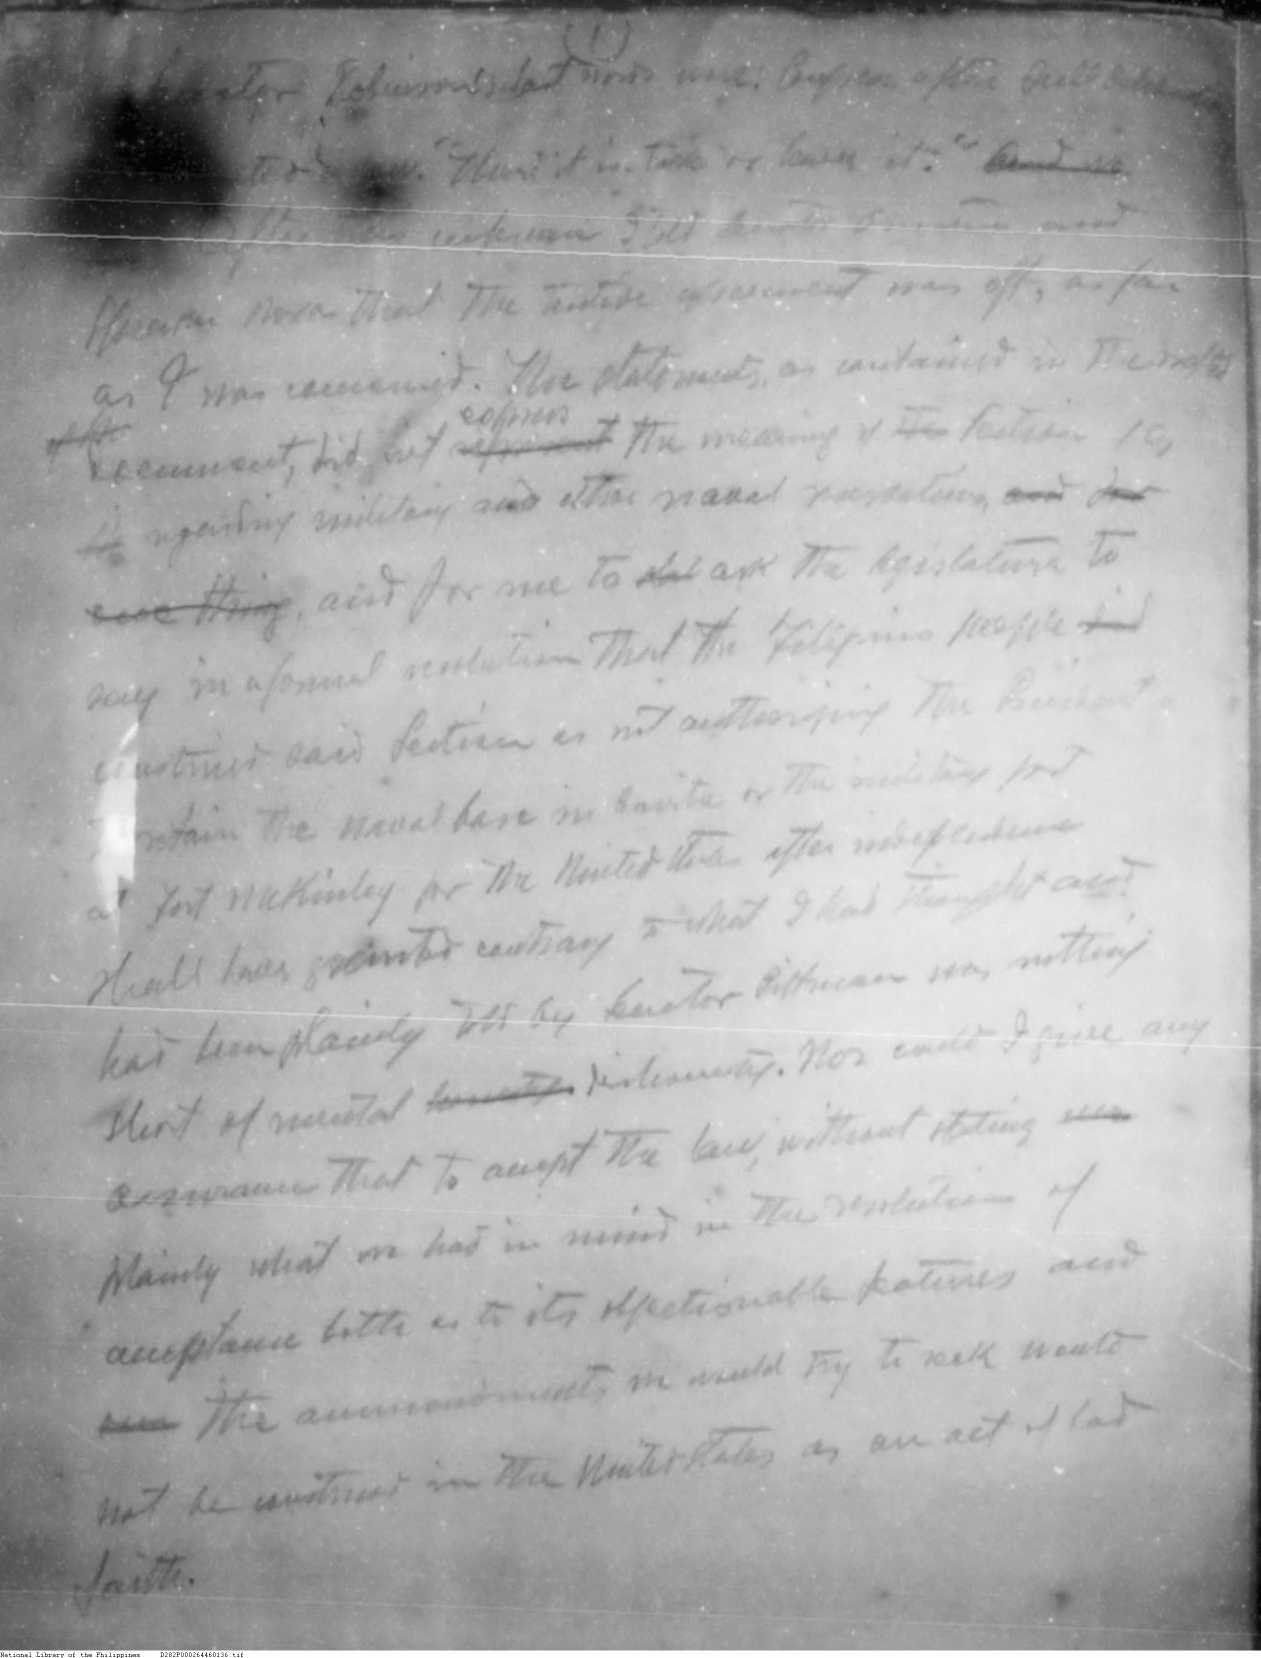 (1)
Senator Robinson's last words were: Congress after full
"There it is. Take or leave it." And so
After this conference I told Senator and
Speaker Roxas that the entire agreement was off, as far
as I was concerned. The statements, as contained in the drafted
document, did not represent express the meaning of the Section 10,
regarding military and other naval reservations, and for
one thing, and for me to ask the legislature to
say in a formal resolution that the Filipino people had
construed said Section as not authorizing the President
to retain the naval base in Cavite or the military post
at Fort McKinley for the United States after independence
shall have granted contrary to what I had thought and
had been plainly told by Senator Pittman was nothing
short of mental honesty dishonesty. Nor could I give any
assurance that to accept the law, without stating
plainly what we had in mind in the resolution of
acceptance both as to its objectionable features and
the ammendments we would try to seek would
not be construed in the United States as an act of bad
faith.
National Library of the Philippines D282P000264460136.tif